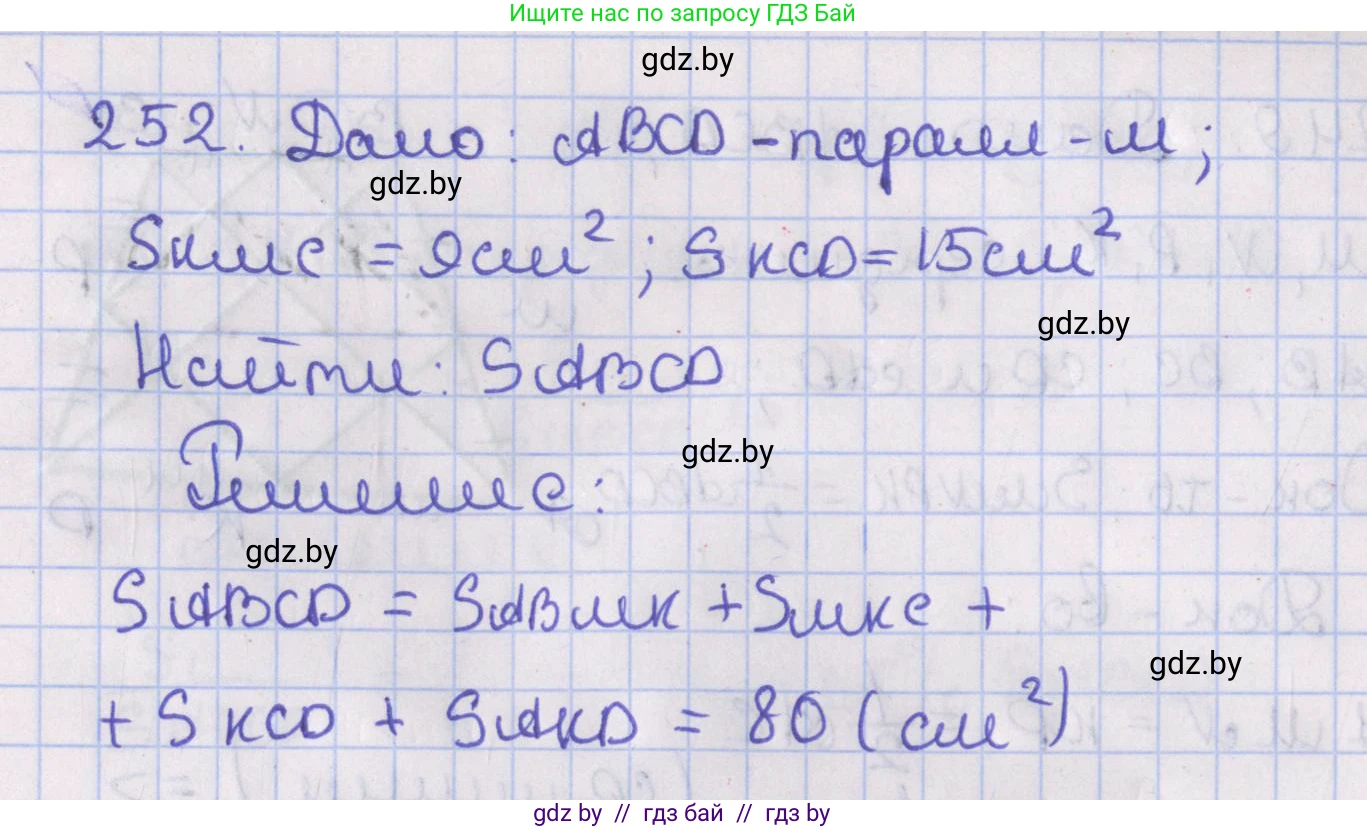 Ищите нас по запросу ГДЗ Бай
gdz.by
252. Дано: ABCD - паралл - м;
gdz.by
Sкмс = 9см²; S KCD = 15см²
gdz.by
Найти: SABCD
gdz.by
Решение:
gdz.by
SABCD = SABMK + SMKC +
gdz.by
+ S KCD + SAKD = 80 (см²)
gdz.by // гдз бай // гдз by